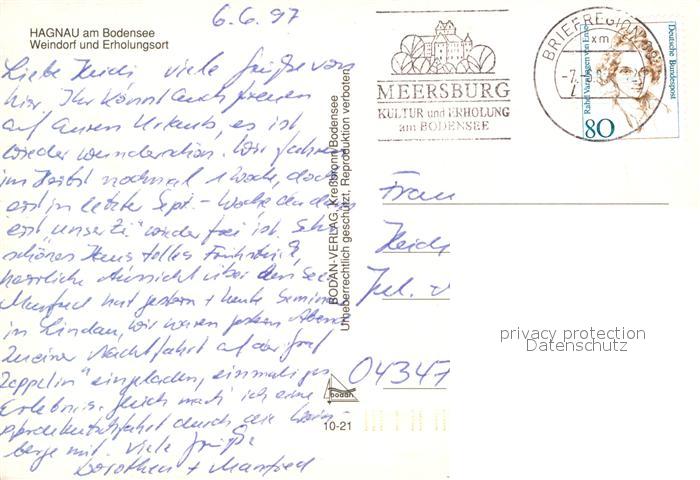 6.6.97
HAGNAU am Bodensee
Weindorf und Erholungsort
Liebe Heidi viele Grüße von
hier. Ihr könnt Euch freuen
auf Euren Urlaub, es ist
wieder wunderschön. Wir fahren
im Herbst nochmal 1 Woche, doch
erst in letzter Sept.-Woche da dann
erst unser Zi wieder frei ist. Sehr
schönes Haus tolles Frühstück,
herrliche Aussicht über den See
Manfred hat gestern + heute Seminar
in Lindau, wir waren gestern Abend
zu einer Nachtfahrt auf der "Graf
Zeppelin" eingeladen, einmaliges
Erlebnis. Gleich mach ich eine
Pferdekutschfahrt durch die Wein-
berge mit. Viele Grüße
Dorothea + Manfred
BODAN-VERLAG, Kreßbronn/Bodensee
Urheberrechtlich geschützt, Reproduktion verboten.
bodan
10-21
MEERSBURG
KULTUR und ERHOLUNG
am BODENSEE
BRIEFREGION
xm
-7.
Rahel Varnhagen von Ense
Deutsche Bundespost
80
Frau
Heidi
04347
privacy protection
Datenschutz